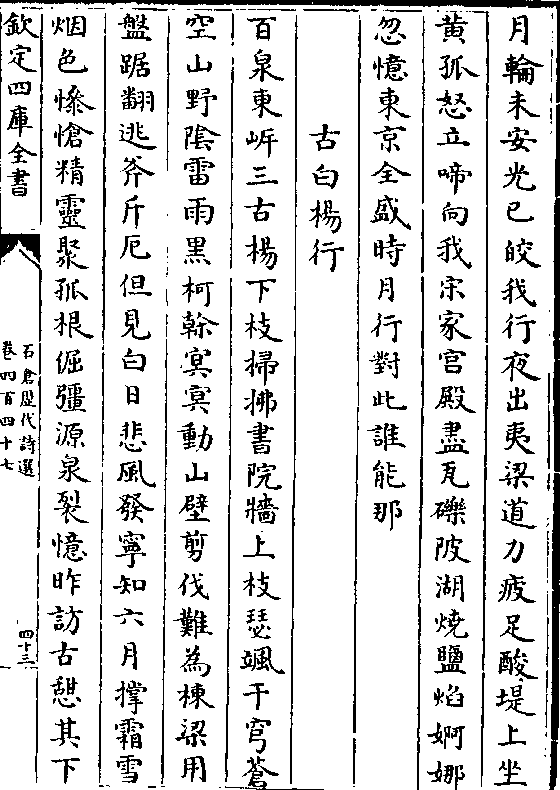 月輪未安光已皎我行夜出夷梁道力疲足酸堤上坐
黄孤怒立啼向我宋家宫殿盡瓦礫陂湖燒鹽焰婀娜
忽憶東京全盛時月行對此誰能那
古白楊行
百泉東㟁三古楊下枝掃拂書院牆上枝瑟颯干穹蒼
空山野陰雷雨黑柯榦㝠㝠動山壁剪伐難為棟梁用
盤踞翻逃斧斤厄但見白日悲風發寧知六月撑霜雪
烟色慘愴精靈聚孤根倔彊源泉裂憶昨訪古憇其下
欽定四庫全書
石倉歴代詩選
卷四百四十七
四十三